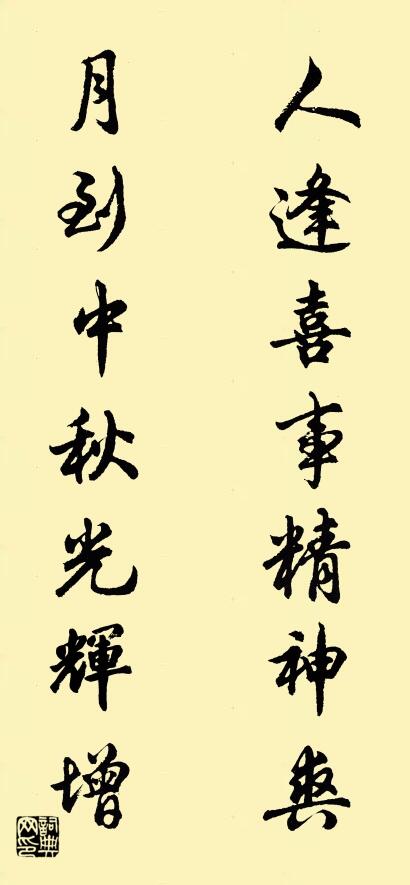 人逢喜事精神爽
月到中秋光輝增
詞典网印